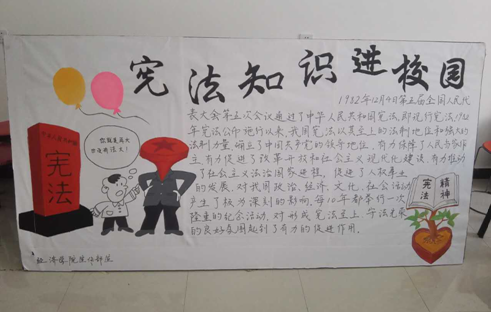 宪法知识进校园
1982年12月4日第五届全国人民代
表大会第五次会议通过了中华人民共和国宪法即现行宪法,1982
年宪法公布施行以来,我国宪法以其至上的法制地位和强大的
法制力量,确立了中国共产党的领导地位,有力保障了人民当家作
主,有力促进了改革开放和社会主义现代化建设,有力推动
了社会主义法治国家进程,促进了人权事业
的发展,对我国政治、经济、文化、社会活动
产生了极为深刻的影响,每10年都举行一次
隆重的纪念活动,对形成宪法至上、守法光荣
的良好氛围起到了有力的促进作用。
宪法
你就是高大
宪法
精神